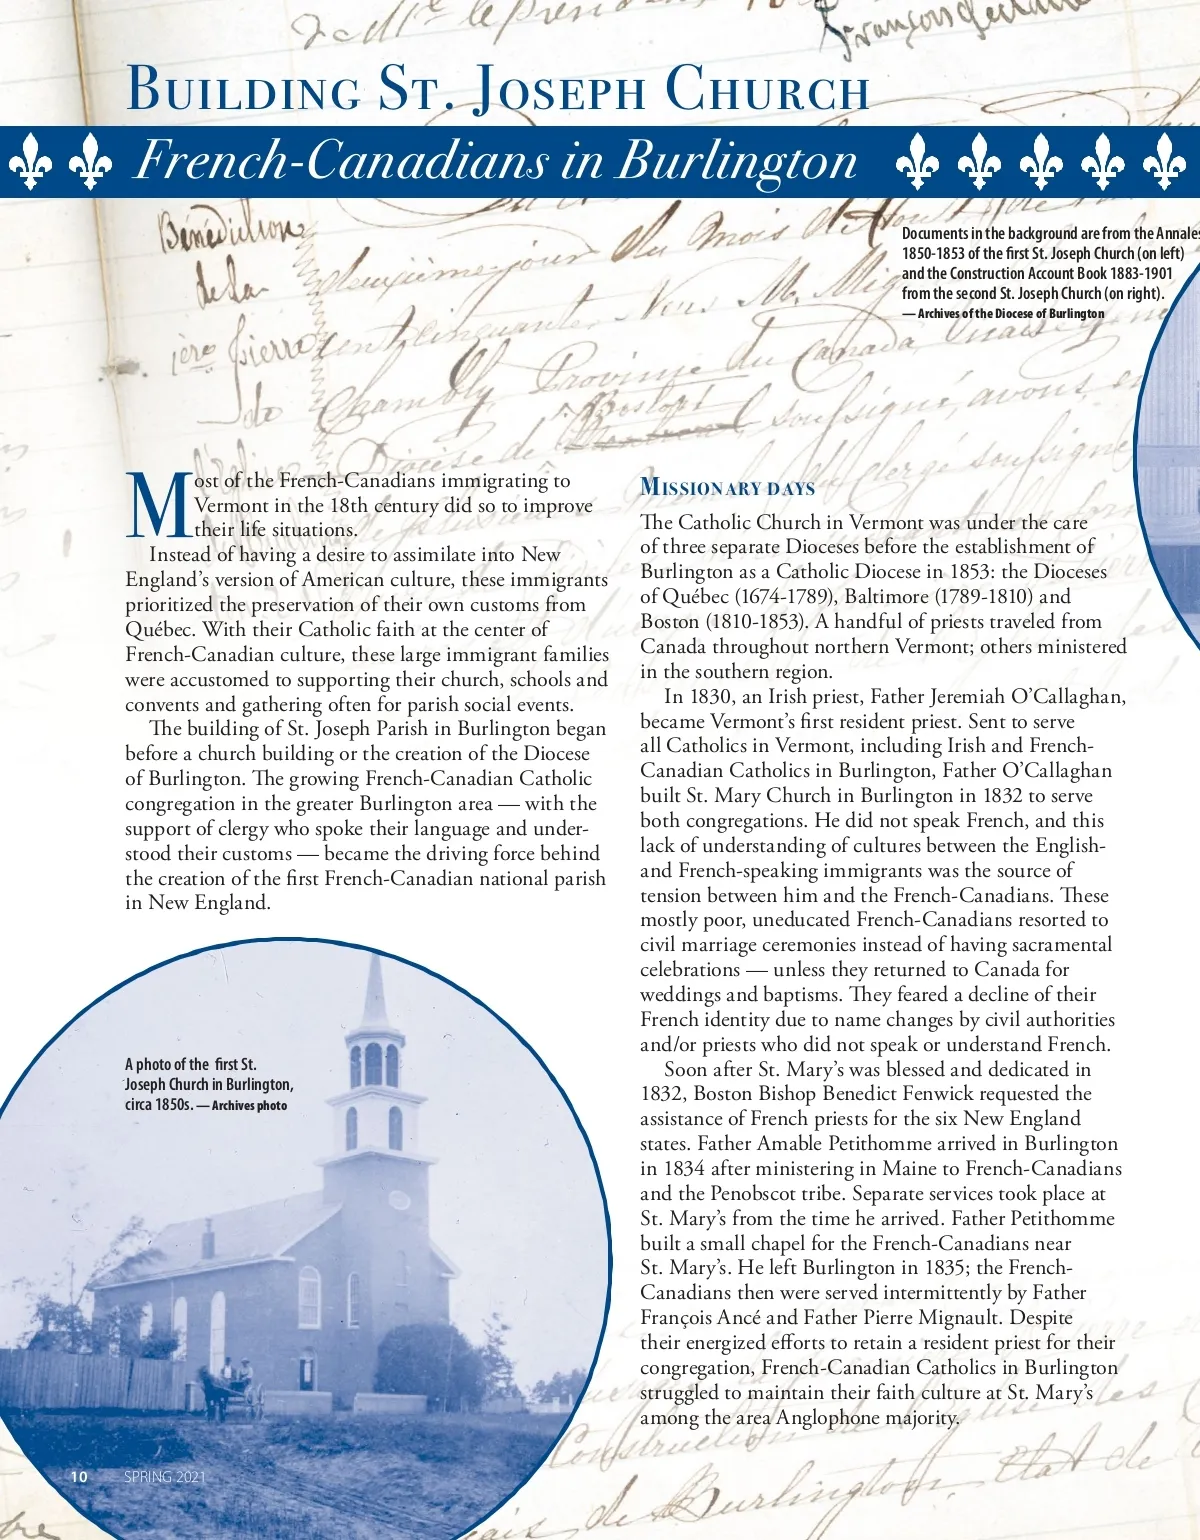 Building St. Joseph Church
French-Canadians in Burlington
Documents in the background are from the Annales
1850-1853 of the first St. Joseph Church (on left)
and the Construction Account Book 1883-1901
from the second St. Joseph Church (on right).
— Archives of the Diocese of Burlington
Bénédiction
de la
1ère pierre
de
deuxième jour du mois d'Août
cent cinquante Nous M. Mig
Chambly Province du Canada
Boston
Diocèse de
soussigné, avons
Most of the French-Canadians immigrating to
Vermont in the 18th century did so to improve
their life situations.
Instead of having a desire to assimilate into New
England’s version of American culture, these immigrants
prioritized the preservation of their own customs from
Québec. With their Catholic faith at the center of
French-Canadian culture, these large immigrant families
were accustomed to supporting their church, schools and
convents and gathering often for parish social events.
The building of St. Joseph Parish in Burlington began
before a church building or the creation of the Diocese
of Burlington. The growing French-Canadian Catholic
congregation in the greater Burlington area — with the
support of clergy who spoke their language and under-
stood their customs — became the driving force behind
the creation of the first French-Canadian national parish
in New England.
A photo of the first St.
Joseph Church in Burlington,
circa 1850s. — Archives photo
Missionary days
The Catholic Church in Vermont was under the care
of three separate Dioceses before the establishment of
Burlington as a Catholic Diocese in 1853: the Dioceses
of Québec (1674-1789), Baltimore (1789-1810) and
Boston (1810-1853). A handful of priests traveled from
Canada throughout northern Vermont; others ministered
in the southern region.
In 1830, an Irish priest, Father Jeremiah O’Callaghan,
became Vermont’s first resident priest. Sent to serve
all Catholics in Vermont, including Irish and French-
Canadian Catholics in Burlington, Father O’Callaghan
built St. Mary Church in Burlington in 1832 to serve
both congregations. He did not speak French, and this
lack of understanding of cultures between the English-
and French-speaking immigrants was the source of
tension between him and the French-Canadians. These
mostly poor, uneducated French-Canadians resorted to
civil marriage ceremonies instead of having sacramental
celebrations — unless they returned to Canada for
weddings and baptisms. They feared a decline of their
French identity due to name changes by civil authorities
and/or priests who did not speak or understand French.
Soon after St. Mary’s was blessed and dedicated in
1832, Boston Bishop Benedict Fenwick requested the
assistance of French priests for the six New England
states. Father Amable Petithomme arrived in Burlington
in 1834 after ministering in Maine to French-Canadians
and the Penobscot tribe. Separate services took place at
St. Mary’s from the time he arrived. Father Petithomme
built a small chapel for the French-Canadians near
St. Mary’s. He left Burlington in 1835; the French-
Canadians then were served intermittently by Father
François Ancé and Father Pierre Mignault. Despite
their energized efforts to retain a resident priest for their
congregation, French-Canadian Catholics in Burlington
struggled to maintain their faith culture at St. Mary’s
among the area Anglophone majority.
Construction
de Burlington, Etat de
10 SPRING 2021